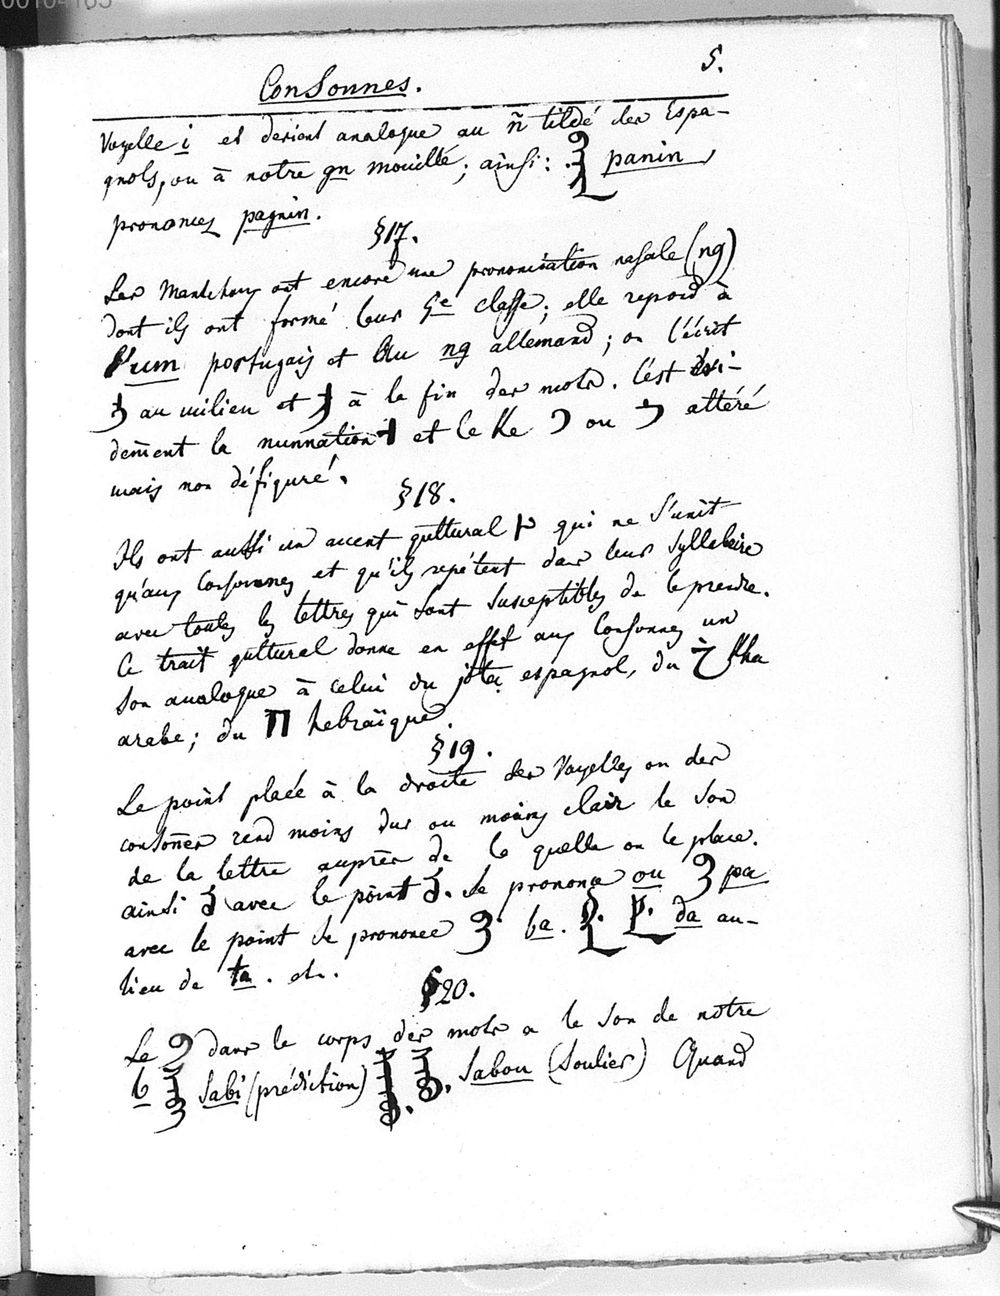 Consonnes. 5.
Voyelle i et devient analogue au ñ tildé des Espa-
gnols, ou à notre gn mouillé; ainsi: panin
prononcez pagnin.
§17.
Les Mantchoux ont encore une prononciation nasale (ng)
dont ils ont formé leur 5e classe; elle repond à
l'um portugais et au ng allemand; on l'écrit
au milieu et à la fin des mots. C'est évi-
dem̄ent la nunnation et le Ke ou altéré
mais non défiguré.
§18.
Ils ont aussi un accent guttural qui ne s'unit
qu'aux Consonnes et qu'ils repétent dans leur Syllabaire
avec toutes les lettres qui sont susceptibles de le prendre.
Ce trait guttural donne en effet aux Consonnes un
son analogue à celui du jota espagnol, du خ Kha
arabe; du ח hebraïque.
§19.
Le point placé à la droite des Voyelles ou des
conson̄es rend moins dur ou moins clair le son
de la lettre auprès de la quelle on le place.
ainsi avec le point se prononce ou pa
avec le point se prononce ba. da au-
lieu de ta. etc.
§20.
Le dans le corps des mots a le son de notre
b Sabi (prédiction) Sabou (Soulier) Quand